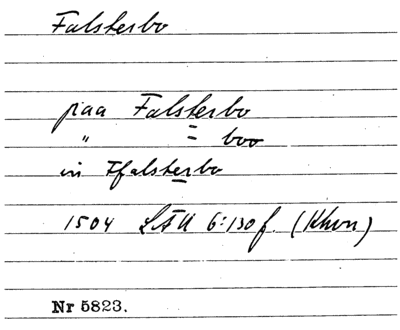 Falsterbo
paa Falsterbo
" = boo
in Ffalsterbo
1504 LÄU 6:130 f. (Khvn)
Nr 5823.